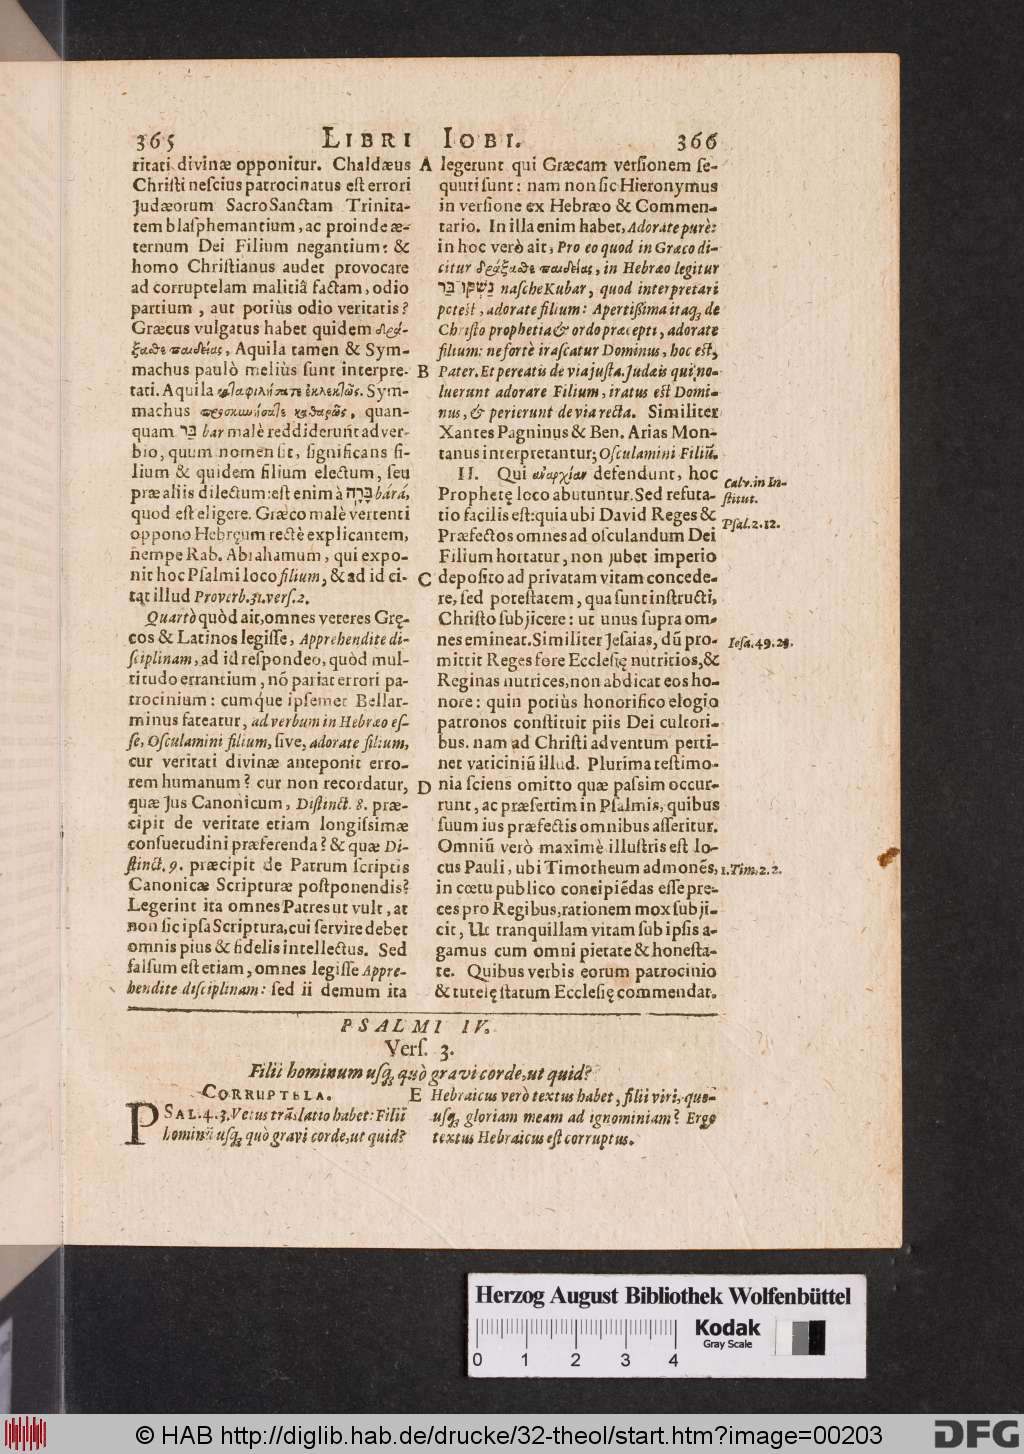 365 LIBRI IOBI. 366
ritati divinæ opponitur. Chaldæus
Christi nescius patrocinatus est errori
Judæorum SacroSanctam Trinita-
tem blasphemantium, ac proinde æ-
ternum Dei Filium negantium: &
homo Christianus audet provocare
ad corruptelam malitiâ factam, odio
partium, aut potiùs odio veritatis?
Græcus vulgatus habet quidem δρά-
ξασθε παιδείας, Aquila tamen & Sym-
machus paulò meliùs sunt interpre-
tati. Aquila καταφιλήσατε ἐκλεκτῶς. Sym-
machus προσκυνήσατε καθαρῶς, quan-
quam בר bar malè reddiderunt adver-
bio, quum nomen sit, significans fi-
lium & quidem filium electum, seu
præ aliis dilectum: est enim à בָּרָה bárá,
quod est eligere. Græco malè vertenti
oppono Hebręum rectè explicantem,
nempe Rab. Abrahamum, qui expo-
nit hoc Psalmi loco filium, & ad id ci-
tat illud Proverb. 31. vers. 2.
Quartò quòd ait, omnes veteres Grę-
cos & Latinos legisse, Apprehendite di-
sciplinam, ad id respondeo, quòd mul-
titudo errantium, nõ pariat errori pa-
trocinium: cumque ipsemet Bellar-
minus fateatur, ad verbum in Hebræo es-
se, Osculamini filium, sive, adorate filium,
cur veritati divinæ anteponit erro-
rem humanum? cur non recordatur,
quæ Jus Canonicum, Distinct. 8. præ-
cipit de veritate etiam longissimæ
consuetudini præferenda? & quæ Di-
stinct. 9. præcipit de Patrum scriptis
Canonicæ Scripturæ postponendis?
Legerint ita omnes Patres ut vult, at
non sic ipsa Scriptura, cui servire debet
omnis pius & fidelis intellectus. Sed
falsum est etiam, omnes legisse Appre-
hendite disciplinam: sed ii demum ita
A legerunt qui Græcam versionem se-
quuti sunt: nam non sic Hieronymus
in versione ex Hebræo & Commen-
tario. In illa enim habet, Adorate purè:
in hoc verò ait, Pro eo quod in Græco di-
citur δράξασθε παιδείας, in Hebræo legitur
נַשְּׁקוּ בַּר nasche Kubar, quod interpretari
potest, adorate filium: Apertissima itaq; de
Christo prophetia & ordo præcepti, adorate
filium: ne fortè irascatur Dominus, hoc est,
B Pater. Et pereatis de via justa. Judæis qui no-
luerunt adorare Filium, iratus est Domi-
nus, & perierunt de via recta. Similiter
Xantes Pagninus & Ben. Arias Mon-
tanus interpretantur; Osculamini Filiũ.
II. Qui ἀναρχίαν defendunt, hoc
Prophetę loco abutuntur. Sed refuta-
tio facilis est: quia ubi David Reges &
Præfectos omnes ad osculandum Dei
Filium hortatur, non jubet imperio
C deposito ad privatam vitam concede-
re, sed potestatem, qua sunt instructi,
Christo subjicere: ut unus supra om-
nes emineat. Similiter Jesaias, dũ pro-
mittit Reges fore Ecclesię nutritios, &
Reginas nutrices, non abdicat eos ho-
nore: quin potiùs honorifico elogio
patronos constituit piis Dei cultori-
bus. nam ad Christi adventum perti-
net vaticiniũ illud. Plurima testimo-
D nia sciens omitto quæ passim occur-
runt, ac præsertim in Psalmis, quibus
suum ius præfectis omnibus asseritur.
Omniũ verò maximè illustris est lo-
cus Pauli, ubi Timotheum admonẽs,
in cœtu publico concipiẽdas esse pre-
ces pro Regibus, rationem mox subji-
cit, Ut tranquillam vitam sub ipsis a-
gamus cum omni pietate & honesta-
te. Quibus verbis eorum patrocinio
& tutelę statum Ecclesię commendat.
Calv. in In-
stitut.
Psal. 2. 12.
Iesa. 49. 23.
1. Tim. 2. 2.
PSALMI IV.
Vers. 3.
Filii hominum usq; quò gravi corde, ut quid?
CORRUPTELA.
PSAL. 4. 3. Vetus trãslatio habet: Filii
hominũ usq; quò gravi corde, ut quid?
E Hebraicus verò textus habet, filii viri, quo-
usq; gloriam meam ad ignominiam? Ergo
textus Hebraicus est corruptus.
Herzog August Bibliothek Wolfenbüttel
Kodak
Gray Scale
0 1 2 3 4
© HAB http://diglib.hab.de/drucke/32-theol/start.htm?image=00203
DFG